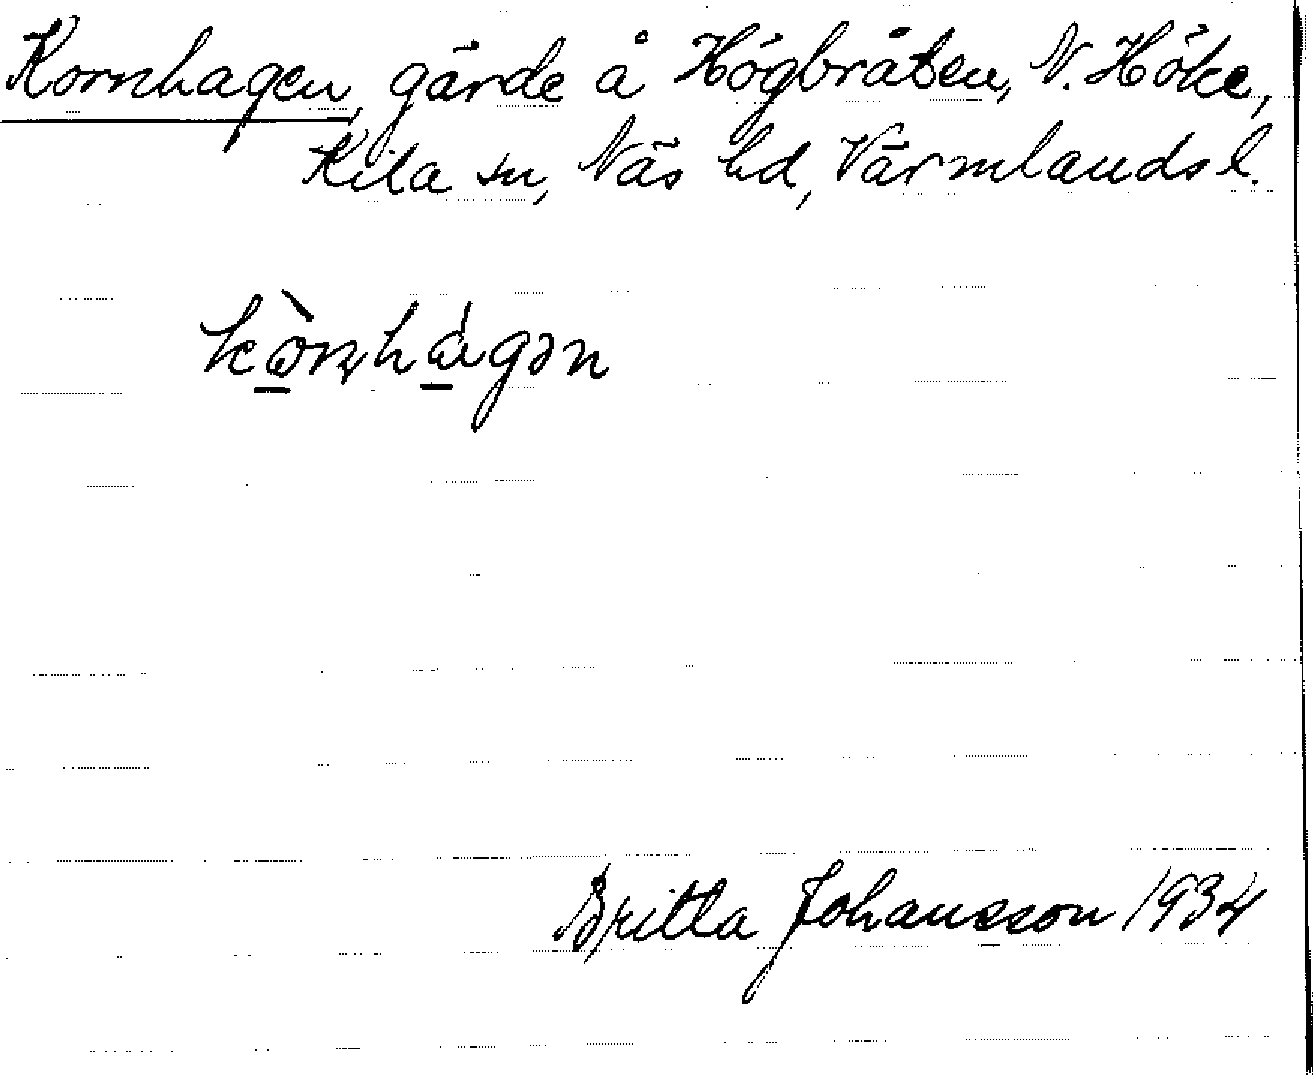 Kornhagen, gärde å Högbråten, N. Höke,
Kila sn, Näs hd, Värmlands l.
Britta Johansson 1934